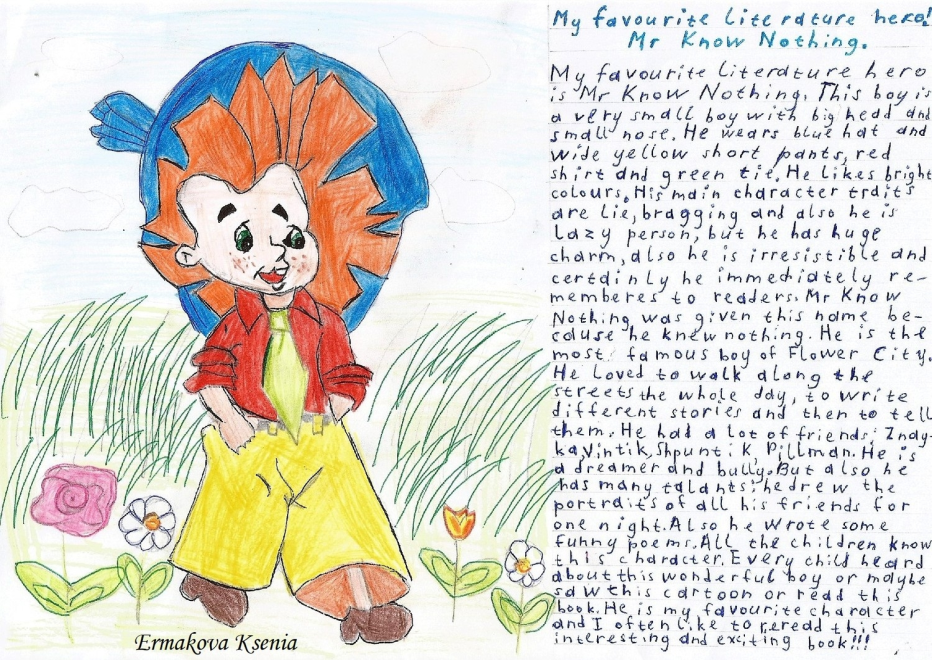 My favourite literature hero!
Mr Know Nothing.
My favourite literature hero
is Mr Know Nothing. This boy is
a very small boy with big head and
small nose. He wears blue hat and
wide yellow short pants, red
shirt and green tie. He likes bright
colours. His main character traits
are lie, bragging and also he is
lazy person, but he has huge
charm, also he is irresistible and
certainly he immediately re-
memberes to readers. Mr Know
Nothing was given this name be-
cause he knew nothing. He is the
most famous boy of Flower City.
He loved to walk along the
streets the whole day, to write
different stories and then to tell
them. He had a lot of friends: Znay-
ka, Vintik, Shpuntik, Pillman. He is
a dreamer and bully. But also he
has many talants: he drew the
portraits of all his friends for
one night. Also he wrote some
funny poems. All the children know
this character. Every child heard
about this wonderful boy or maybe
saw this cartoon or read this
book. He is my favourite character
and I often like to reread this
interesting and exciting book!!!
Ermakova Ksenia